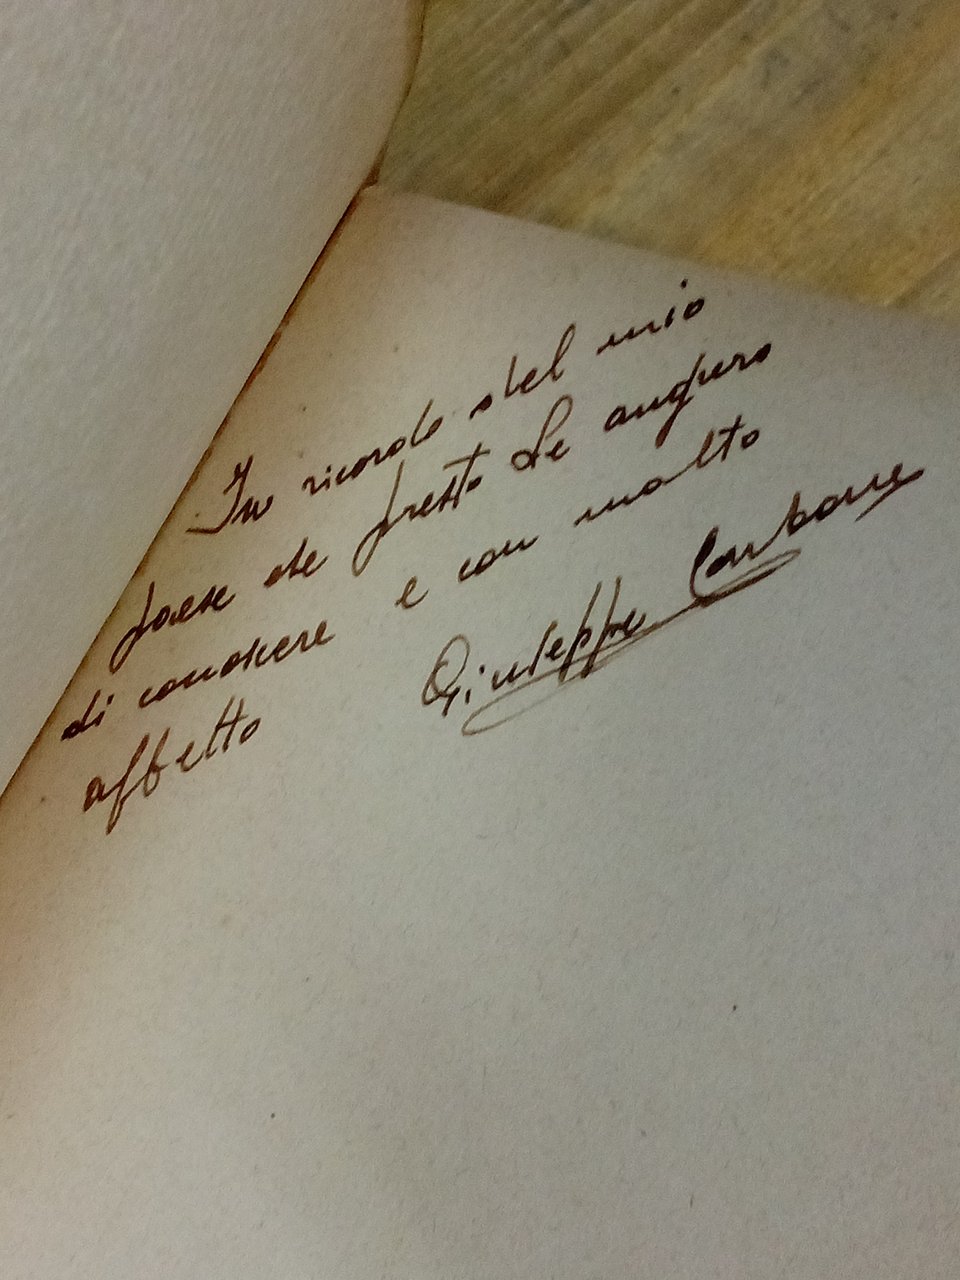 In ricordo del mio
paese che presto Le auguro
di conoscere e con molto
affetto
Giuseppe Carbone